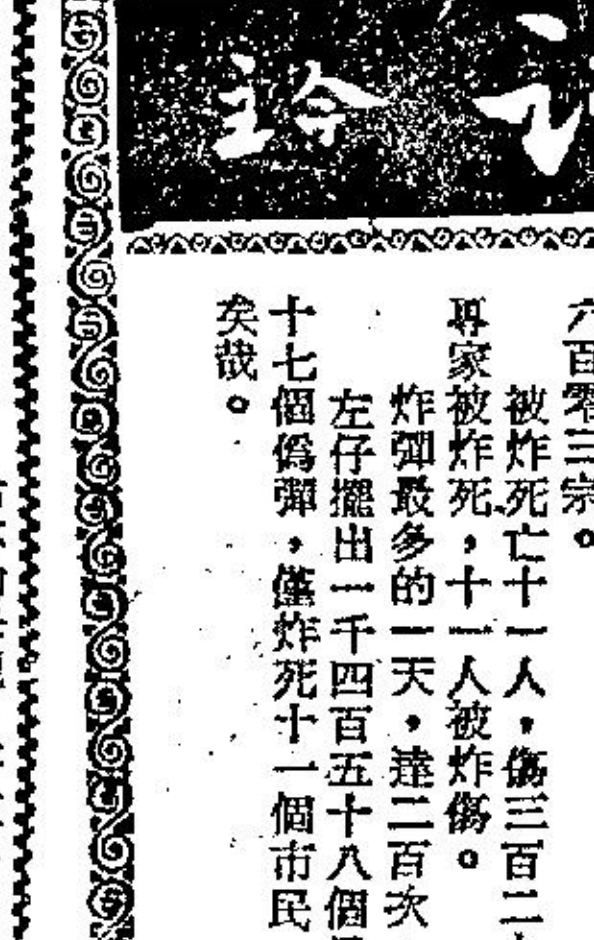 六百零三宗。
被炸死亡十一人，傷三百二
專家被炸死，十一人被炸傷。
炸彈最多的一天，達二百次
左仔擺出一千四百五十八個
十七個偽彈，僅炸死十一個市民
矣哉。